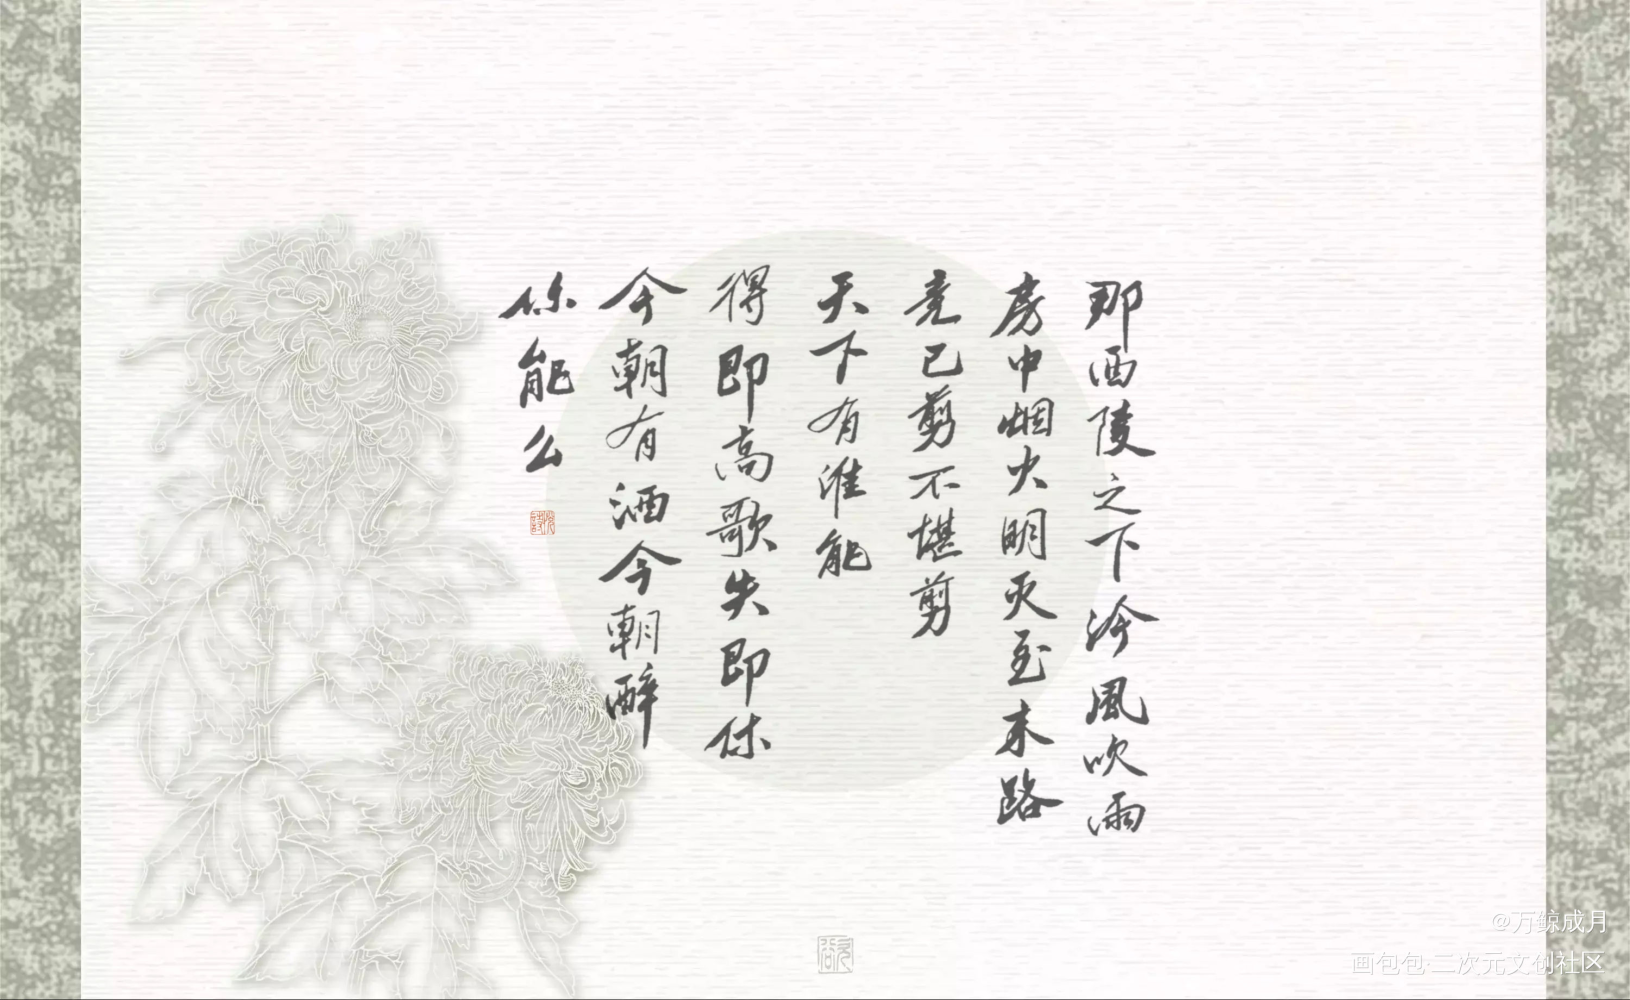 那西陵之下冷风吹雨
房中烟火明灭至末路
竟已剪不堪剪
天下有谁能
得即高歌失即休
今朝有酒今朝醉
你能么
@万鲸成月
画包包·二次元文创社区